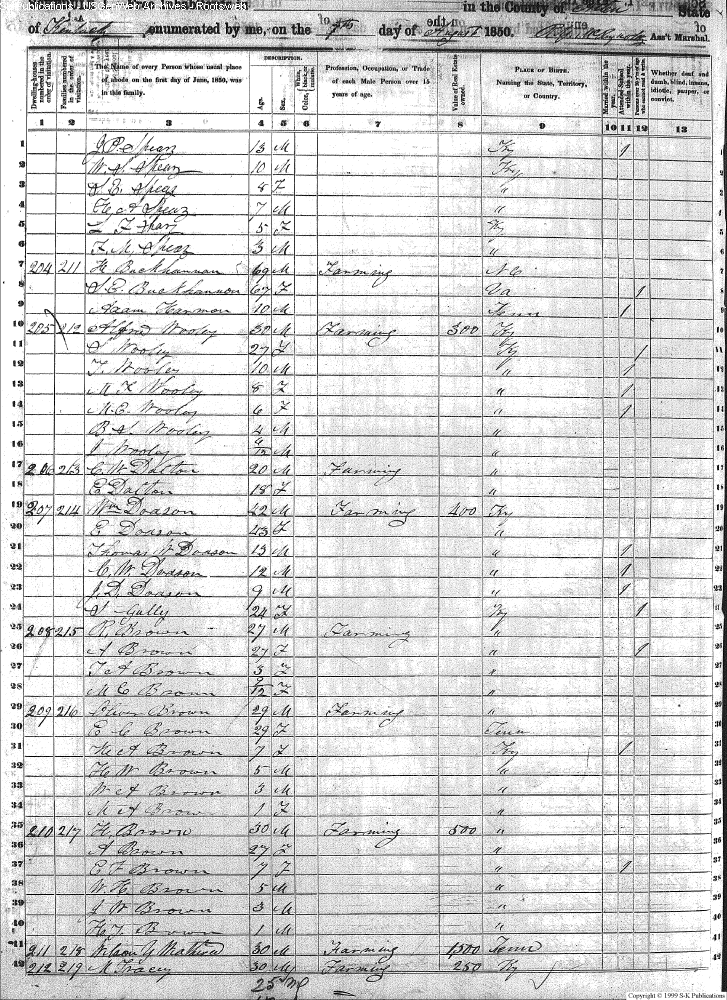 in the County of State
of Kentucky enumerated by me, on the 7th day of August 1850. Ass't Marshal.
DESCRIPTION.
Dwelling-houses numbered in the order of visitation.
Families numbered in the order of visitation.
The Name of every Person whose usual place of abode on the first day of June, 1850, was in this family.
Age.
Sex.
White, Color, black or mulatto.
Profession, Occupation, or Trade of each Male Person over 15 years of age.
Value of Real Estate owned.
PLACE OF BIRTH. Naming the State, Territory, or Country.
Married within the year.
Attended School within the year.
Whether deaf and dumb, blind, insane, idiotic, pauper, or convict.
1 2 3 4 5 6 7 8 9 10 11 12 13
1 J P Spear 13 M Ky 1
2 W. S. Spear 10 M Ky
3 S. E. Spear 8 F "
4 H A Spear 7 M "
5 L F Spear 5 F Ky
6 F. M. Spear 3 M "
7 204 211 H Buckhannan 69 M Farming N C
8 S. E. Buckhannon 67 F Va 1
9 Adam Harmon 10 M Tenn 1
10 205 212 Alfred Wooley 30 M Farming 300 Ky
11 S Wooley 27 F Ky 1
12 F. Wooley 10 M " 1
13 M F Wooley 8 F " 1
14 M. E. Wooley 6 F " 1
15 B S. Wooley 4 M "
16 J Wooley /12 M "
17 206 213 C. W. Dalton 20 M Farming "
18 E Dalton 18 F "
19 207 214 Wm Dodson 42 M Farming 400 Ky
20 E Dodson 43 F "
21 Thomas W Dodson 13 M " 1
22 C. W. Dodson 12 M " 1
23 J. D. Dodson 9 M " 1
24 S Gully 24 F Ky 1
25 208 215 R. Brown 27 M Farming "
26 A Brown 27 F " 1
27 T A Brown 3 F "
28 M E Brown 9/12 F "
29 209 216 Oliver Brown 29 M Farming "
30 E C Brown 29 F Tenn
31 H A Brown 7 F Ky 1
32 H W Brown 5 M "
33 W A Brown 3 M "
34 M A Brown 1 F "
35 210 217 H. Brown 30 M Farming 500 "
36 A Brown 27 F "
37 E F Brown 7 F " 1
38 W. H. Brown 5 M "
39 J W Brown 3 M "
40 H F Brown 1 M "
41 211 218 30 M Farming 1500 Tenn
42 212 219 M Tracey 30 M Farming 250 Ky
25 M
Copyright © 1999 S-K Publications